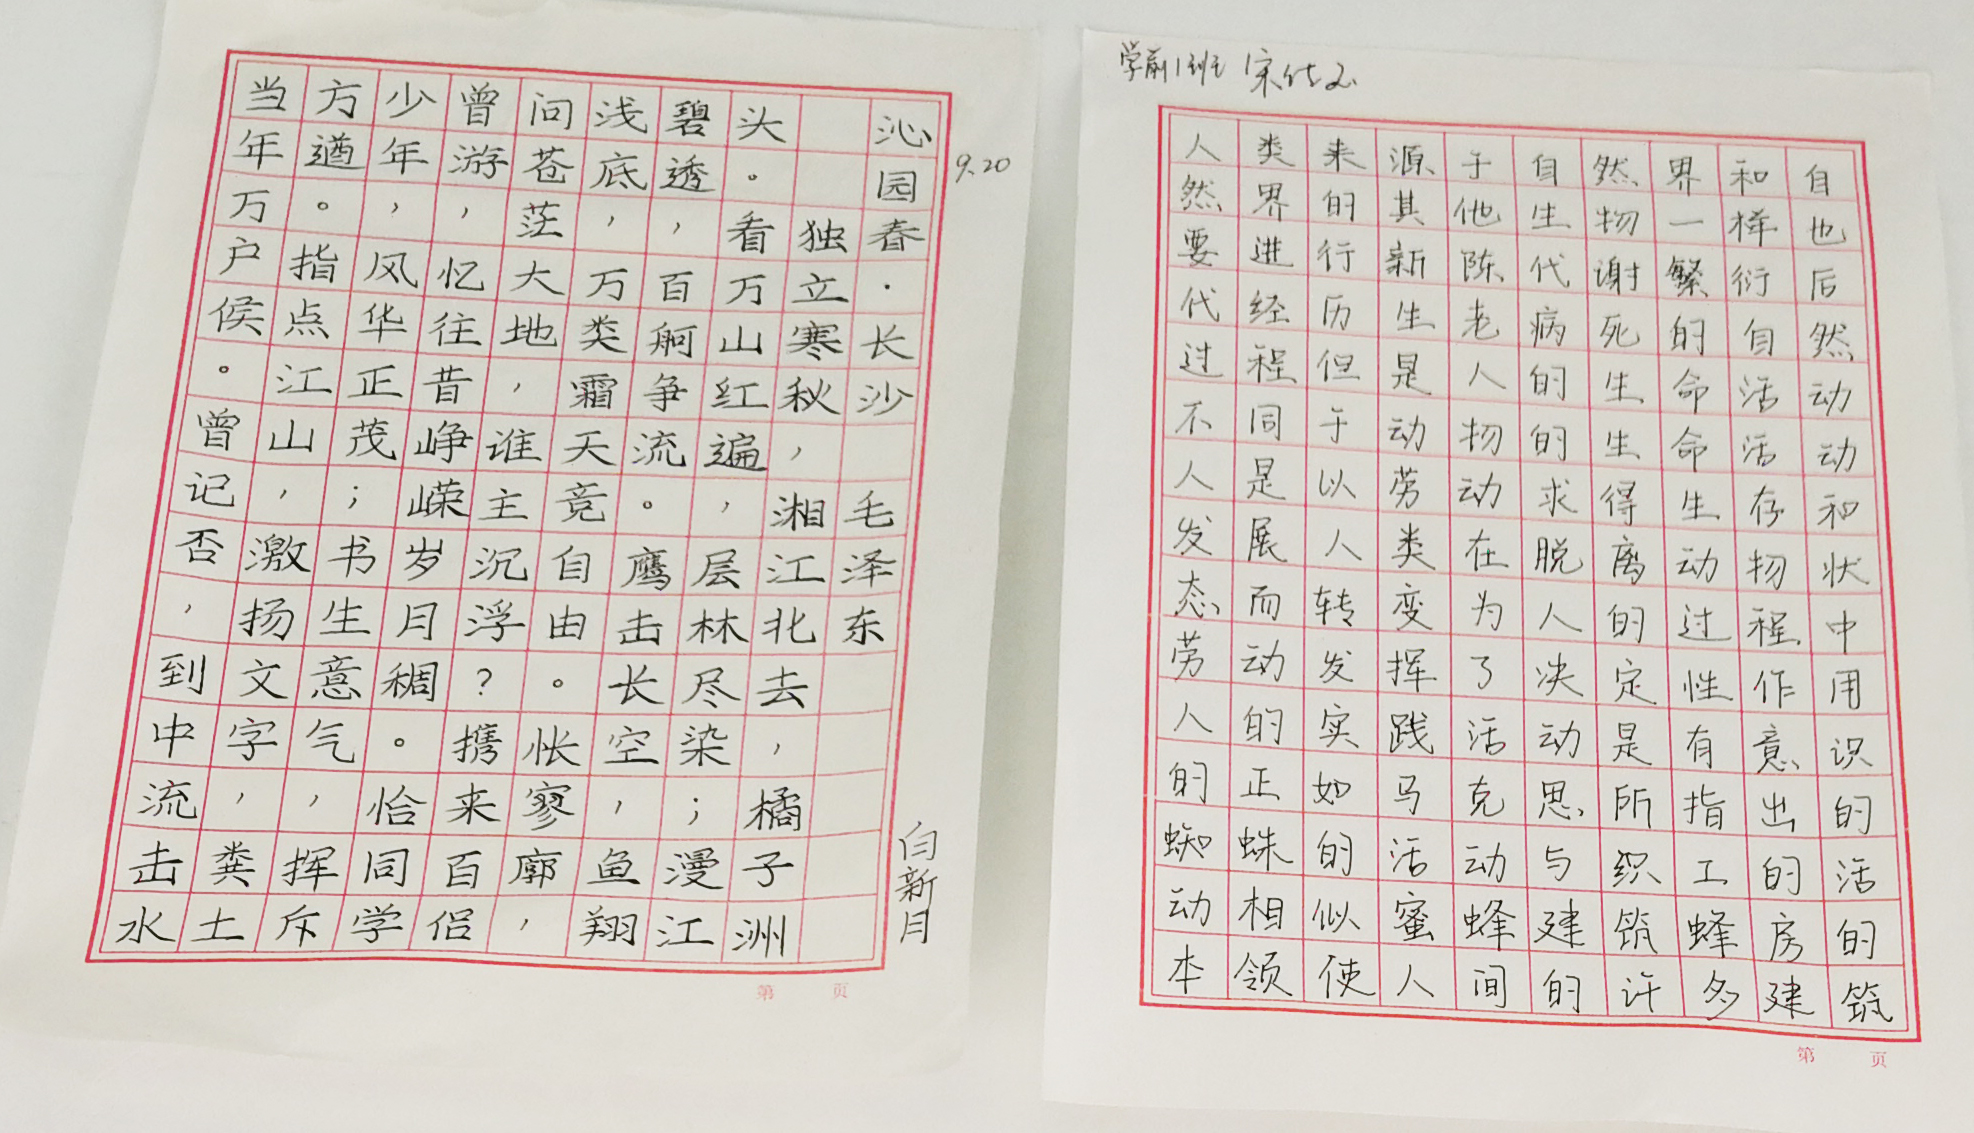 9.20
沁园春·长沙 毛泽东
独立寒秋,湘江北去,橘子洲
头。看万山红遍,层林尽染;漫江
碧透,百舸争流。鹰击长空,鱼翔
浅底,万类霜天竞自由。怅寥廓,
问苍茫大地,谁主沉浮?携来百侣
曾游,忆往昔峥嵘岁月稠。恰同学
少年,风华正茂;书生意气,挥斥
方遒。指点江山,激扬文字,粪土
当年万户侯。曾记否,到中流击水
白新月
第 页
学前1班 宋
人类来源于自然界和自
然界的其他生物一样也
要进行新陈代谢繁衍后
代经历生老病死的自然
过程但是人的生命活动
不同于动物的生命活动
人是以劳动求得生存和
发展人类在脱离动物状
态而转变为人的过程中
劳动发挥了决定性作用
人的实践活动是有意识
的正如马克思所指出的
蜘蛛的活动与织工的活
动相似蜜蜂建筑蜂房的
本领使人间的许多建筑
第 页